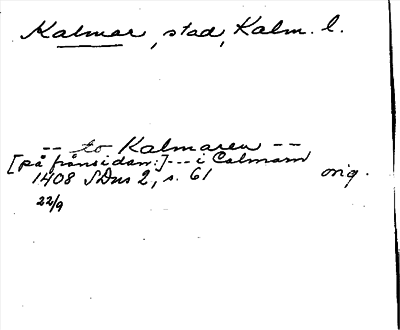 Kalmar, stad, Kalm. l.
-- to Kalmaren --
[på frånsidan:] --- i Calmarn
1408 SDns 2, s. 61 orig.
22/9